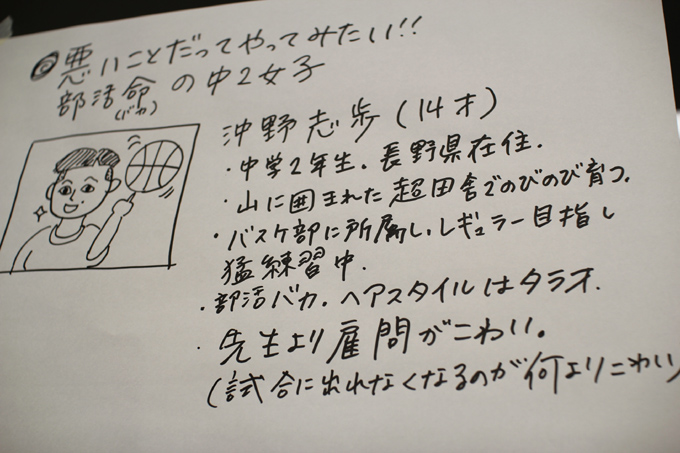 ◎悪いことだってやってみたい!!
部活命の中2女子
(バカ)
沖野志歩(14才)
・中学2年生。長野県在住.
・山に囲まれた超田舎でのびのび育つ。
・バスケ部に所属し、レギュラー目指し
猛練習中.
・部活バカ。ヘアスタイルはタラオ.
・先生より雇問がこわい。
(試合に出れなくなるのが何よりこわい